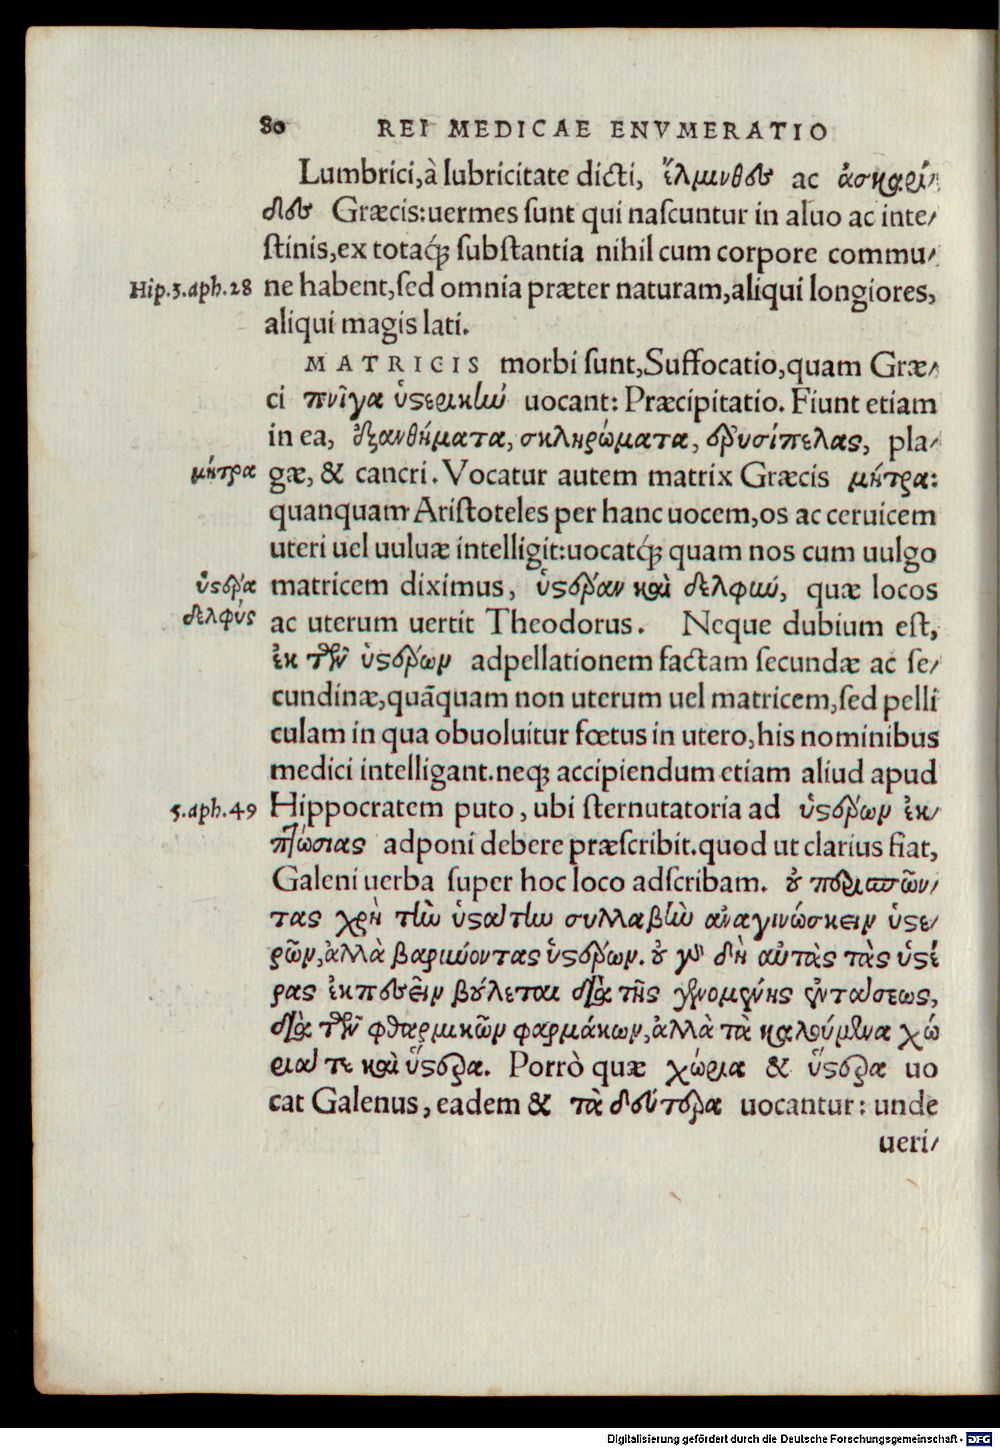 80 REI MEDICAE ENVMERATIO
Lumbrici, à lubricitate dicti, ἕλμινθες ac ἀσκαρί-
δες Græcis: uermes sunt qui nascuntur in aluo ac inte-
stinis, ex totaq́ꝫ substantia nihil cum corpore commu-
Hip.3.aph.28 ne habent, sed omnia præter naturam, aliqui longiores,
aliqui magis lati.
MATRICIS morbi sunt, Suffocatio, quam Græ-
ci πνῖγα ὑστερικὴν uocant: Præcipitatio. Fiunt etiam
in ea, ἐξανθήματα, σκληρώματα, ἐρυσίπελας, pla-
μήτρα gæ, & cancri. Vocatur autem matrix Græcis μήτρα:
quanquam Aristoteles per hanc uocem, os ac ceruicem
uteri uel uuluæ intelligit: uocatq́ꝫ quam nos cum uulgo
ὑστέρα matricem diximus, ὑστέραν καὶ δελφὺν, quæ locos
δελφύς ac uterum uertit Theodorus. Neque dubium est,
ἐκ τῶν ὑστέρων adpellationem factam secundæ ac se-
cundinæ, quãquam non uterum uel matricem, sed pelli
culam in qua obuoluitur fœtus in utero, his nominibus
medici intelligant. neqꝫ accipiendum etiam aliud apud
5.aph.49 Hippocratem puto, ubi sternutatoria ad ὑστέρων ἐκ-
πτώσιας adponi debere præscribit. quod ut clarius fiat,
Galeni uerba super hoc loco adscribam. οὐ περισπῶν-
τας χρὴ τὴν ὑστάτην συλλαβὴν ἀναγινώσκειν ὑστε-
ρῶν, ἀλλὰ βαρύνοντας ὑστέρων. οὐ γὰρ δὴ αὐτὰς τὰς ὑστέ
ρας ἐκπεσεῖν βούλεται διὰ τῆς γενομένης ἐντάσεως,
διὰ τῶν φθαρμικῶν φαρμάκων, ἀλλὰ τὰ καλούμενα χώ
ριά τε καὶ ὕστερα. Porrò quæ χώρια & ὕστερα uo
cat Galenus, eadem & τὰ δεύτερα uocantur: unde
ueri-
Digitalisierung gefördert durch die Deutsche Forschungsgemeinschaft - DFG